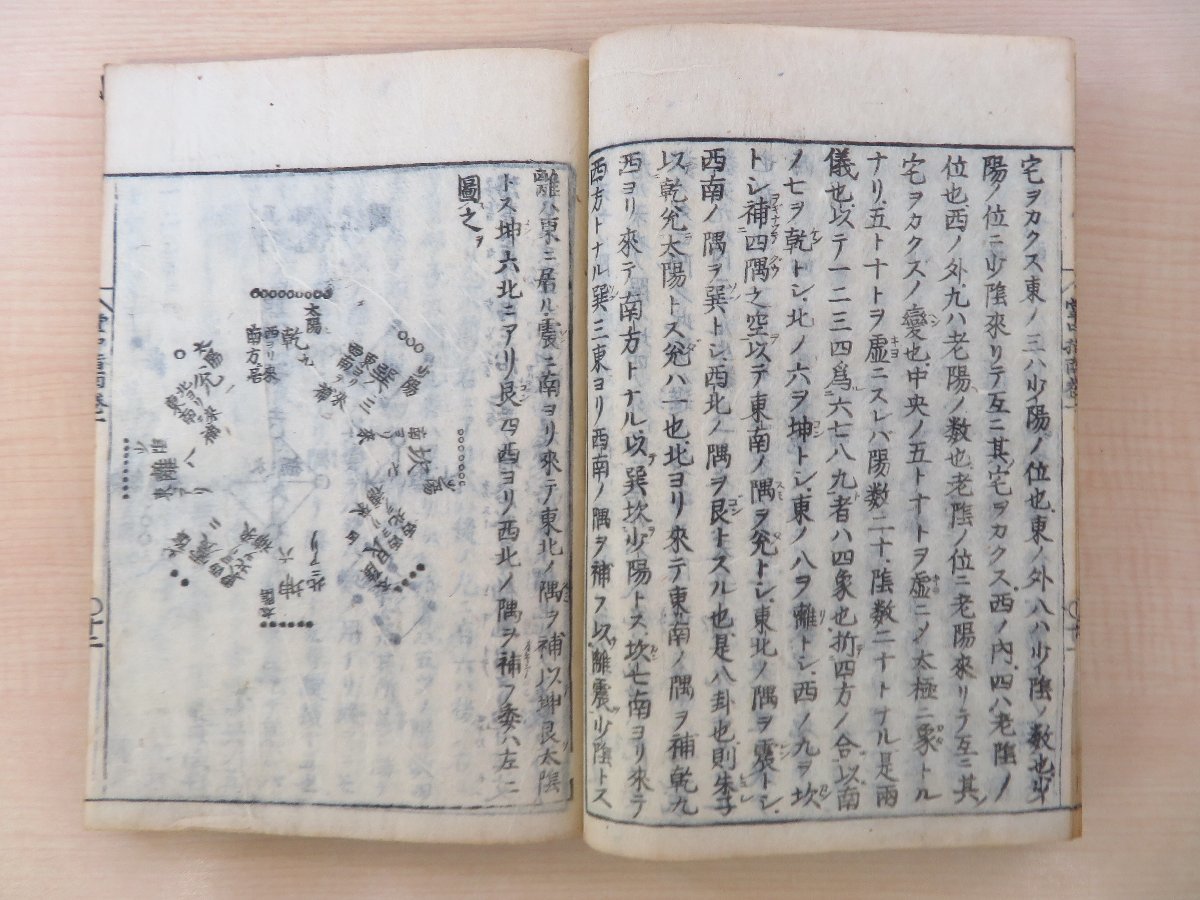 宅ヲカクス東ノ三ハ少陽ノ位也東ノ外八ハ少陰ノ数也少
陽ノ位ニ少陰來リテ互ニ其宅ヲカクス西ノ内四ハ老陰ノ
位也西ノ外九ハ老陽ノ数也老陰ノ位ニ老陽來リテ互ニ其
宅ヲカクスノ變也中央ノ五ト十トヲ虚ニメ太極ニ象トル
ナリ五ト十トヲ虚ニスレハ陽数二十陰数二十トナル是兩
儀也以テ一二三四爲六七八九者ハ四象也折四方ノ合以南
ノ七ヲ乾トシ北ノ六ヲ坤トシ東ノ八ヲ離トシ西ノ九ヲ坎
トシ補四隅之空以テ東南ノ隅ヲ兊トシ東北ノ隅ヲ震トシ
西南ノ隅ヲ巽トシ西北ノ隅ヲ艮トスル也是八卦也則朱子
以乾兊太陽トス兊ハ一也北ヨリ來テ東南ノ隅ヲ補乾九
西ヨリ來テ南方トナル以巽坎少陽トス坎七南ヨリ來テ
西方トナル巽三東ヨリ西南ノ隅ヲ補フ以離震少陰トス
離八東ニ居ル震二南ヨリ來テ東北ノ隅ヲ補以坤艮太陰
トス坤六北ニアリ艮四西ヨリ西北ノ隅ヲ補フ委ハ左ニ
圖之ヲ
太陽
乾九
西ヨリ來
南方居
少陽
巽三
坎
艮四
坤六
北ニアリ
太陰
震二
離八
兊